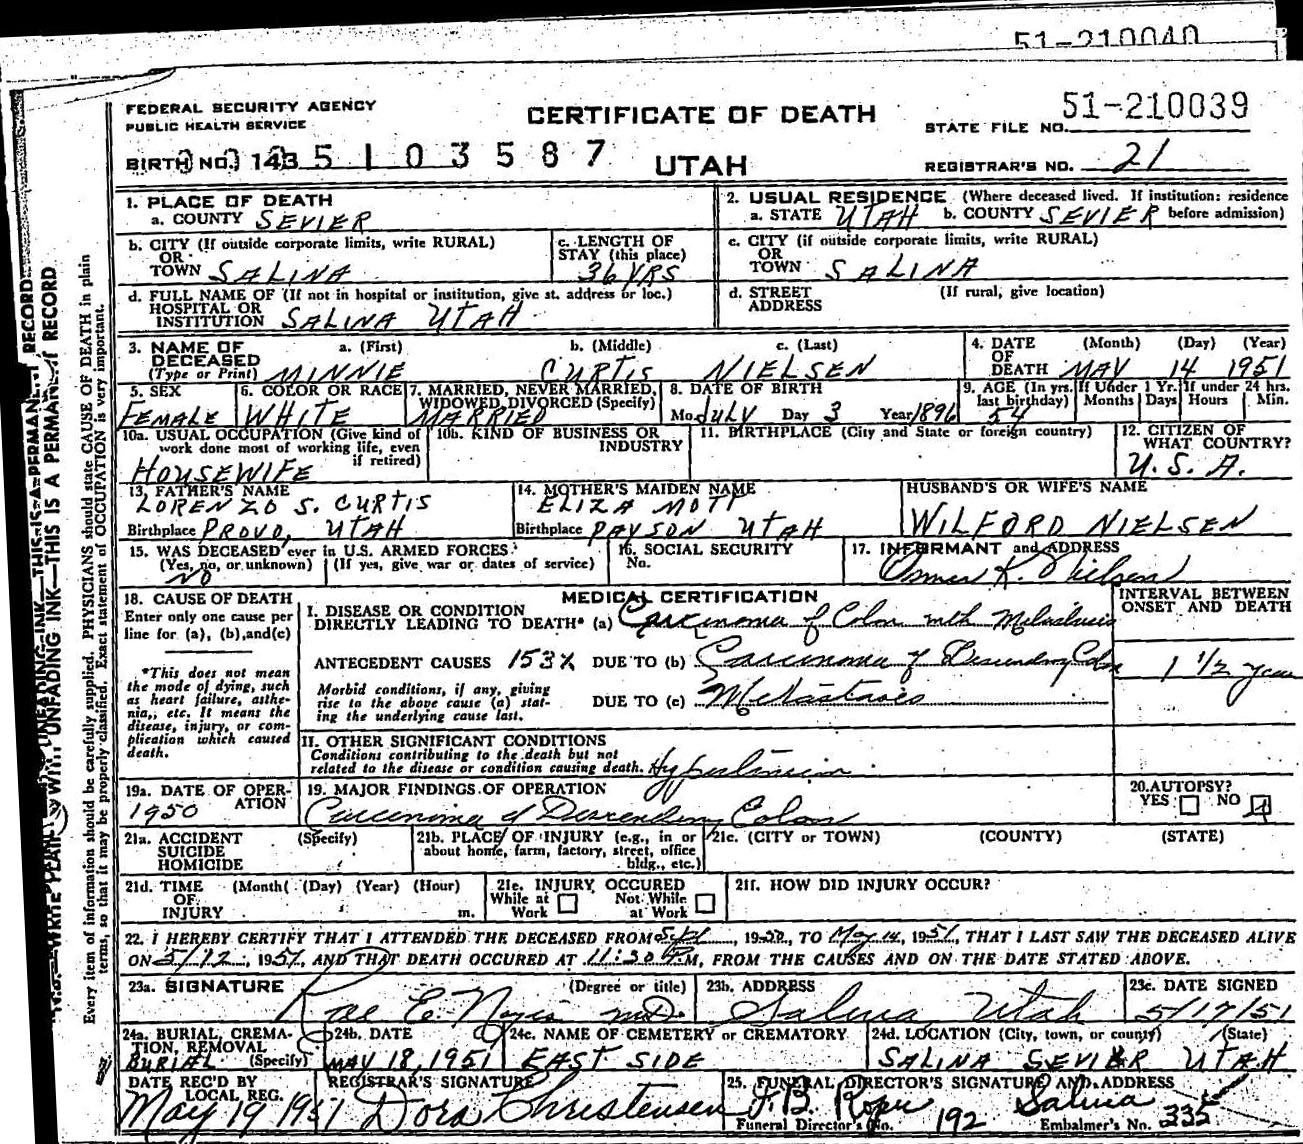 51-210040
FEDERAL SECURITY AGENCY
PUBLIC HEALTH SERVICE
CERTIFICATE OF DEATH
UTAH
51-210039
STATE FILE NO.
BIRTH NO. 143 5 1 0 3 5 8 7
REGISTRAR'S NO. 21
1. PLACE OF DEATH
a. COUNTY SEVIER
2. USUAL RESIDENCE (Where deceased lived. If institution: residence
a. STATE UTAH b. COUNTY SEVIER before admission)
b. CITY (If outside corporate limits, write RURAL)
OR
TOWN SALINA
c. LENGTH OF
STAY (this place)
36 YRS
c. CITY (if outside corporate limits, write RURAL)
OR
TOWN SALINA
d. FULL NAME OF (If not in hospital or institution, give st. address or loc.)
HOSPITAL OR
INSTITUTION SALINA UTAH
d. STREET (If rural, give location)
ADDRESS
3. NAME OF DECEASED (Type or Print)
a. (First) b. (Middle) c. (Last)
MINNIE CURTIS NIELSEN
4. DATE OF DEATH (Month) (Day) (Year)
MAY 14 1951
5. SEX
FEMALE
6. COLOR OR RACE
WHITE
7. MARRIED, NEVER MARRIED,
WIDOWED, DIVORCED (Specify)
MARRIED
8. DATE OF BIRTH
Mo. JULY Day 3 Year 1896
9. AGE (In yrs. last birthday) 54
If Under 1 Yr. Months Days
If under 24 hrs. Hours Min.
10a. USUAL OCCUPATION (Give kind of
work done most of working life, even
if retired)
HOUSEWIFE
10b. KIND OF BUSINESS OR
INDUSTRY
11. BIRTHPLACE (City and State or foreign country)
12. CITIZEN OF
WHAT COUNTRY?
U.S.A.
13. FATHER'S NAME
LORENZO S. CURTIS
Birthplace PROVO, UTAH
14. MOTHER'S MAIDEN NAME
ELIZA MOTT
Birthplace PAYSON UTAH
HUSBAND'S OR WIFE'S NAME
WILFORD NIELSEN
15. WAS DECEASED ever in U.S. ARMED FORCES?
(Yes, no, or unknown) (If yes, give war or dates of service)
NO
16. SOCIAL SECURITY
No.
17. INFORMANT and ADDRESS
K. Nielsen
18. CAUSE OF DEATH
Enter only one cause per
line for (a), (b), and (c)
*This does not mean
the mode of dying, such
as heart failure, asthe-
nia, etc. It means the
disease, injury, or com-
plication which caused
death.
MEDICAL CERTIFICATION
I. DISEASE OR CONDITION
DIRECTLY LEADING TO DEATH* (a) Carcinoma of Colon with Metastasis
INTERVAL BETWEEN
ONSET AND DEATH
ANTECEDENT CAUSES 153X DUE TO (b) Carcinoma of Descending Colon
1 1/2 year
Morbid conditions, if any, giving
rise to the above cause (a) stat-
ing the underlying cause last.
DUE TO (c) Metastases
II. OTHER SIGNIFICANT CONDITIONS
Conditions contributing to the death but not
related to the disease or condition causing death. Hypertension
19a. DATE OF OPER-
ATION
1950
19. MAJOR FINDINGS OF OPERATION
Carcinoma of Descending Colon
20. AUTOPSY?
YES NO
21a. ACCIDENT (Specify)
SUICIDE
HOMICIDE
21b. PLACE OF INJURY (e.g., in or
about home, farm, factory, street, office
bldg., etc.)
21c. (CITY or TOWN) (COUNTY) (STATE)
21d. TIME (Month) (Day) (Year) (Hour)
OF
INJURY m.
21e. INJURY OCCURED
While at Work
Not While at Work
21f. HOW DID INJURY OCCUR?
22. I HEREBY CERTIFY THAT I ATTENDED THE DECEASED FROM Sept, 1950, TO May 14, 1951, THAT I LAST SAW THE DECEASED ALIVE
ON 5/12, 1951, AND THAT DEATH OCCURED AT 11:30 M, FROM THE CAUSES AND ON THE DATE STATED ABOVE.
23a. SIGNATURE (Degree or title)
Rae E. Noyes MD.
23b. ADDRESS
Salina, Utah
23c. DATE SIGNED
5/17/51
24a. BURIAL, CREMA-
TION, REMOVAL
BURIAL (Specify)
24b. DATE
MAY 18, 1951
24c. NAME OF CEMETERY or CREMATORY
EAST SIDE
24d. LOCATION (City, town, or county) (State)
SALINA SEVIER UTAH
DATE REC'D BY
LOCAL REG.
May 19 1951
REGISTRAR'S SIGNATURE
Dora Christensen
25. FUNERAL DIRECTOR'S SIGNATURE AND ADDRESS
Salina
Funeral Director's No. 192 Embalmer's No. 335
WITH UNFADING INK—THIS IS A PERMANENT RECORD
Every item of information should be carefully supplied. PHYSICIANS should state CAUSE OF DEATH in plain
terms, so that it may be properly classified. Exact statement of OCCUPATION is very important.